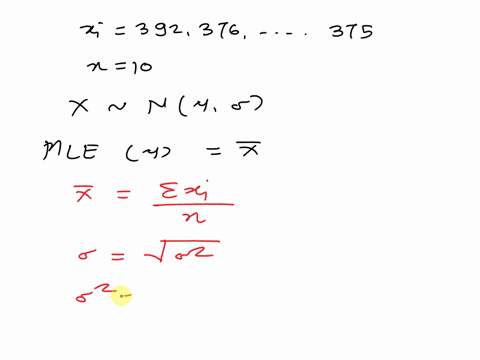 xi = 392, 376, ---- 375
n = 10
X ~ N(μ, σ)
MLE (μ) = x̄
x̄ = Σxi / n
σ = √σ2
σ2 -